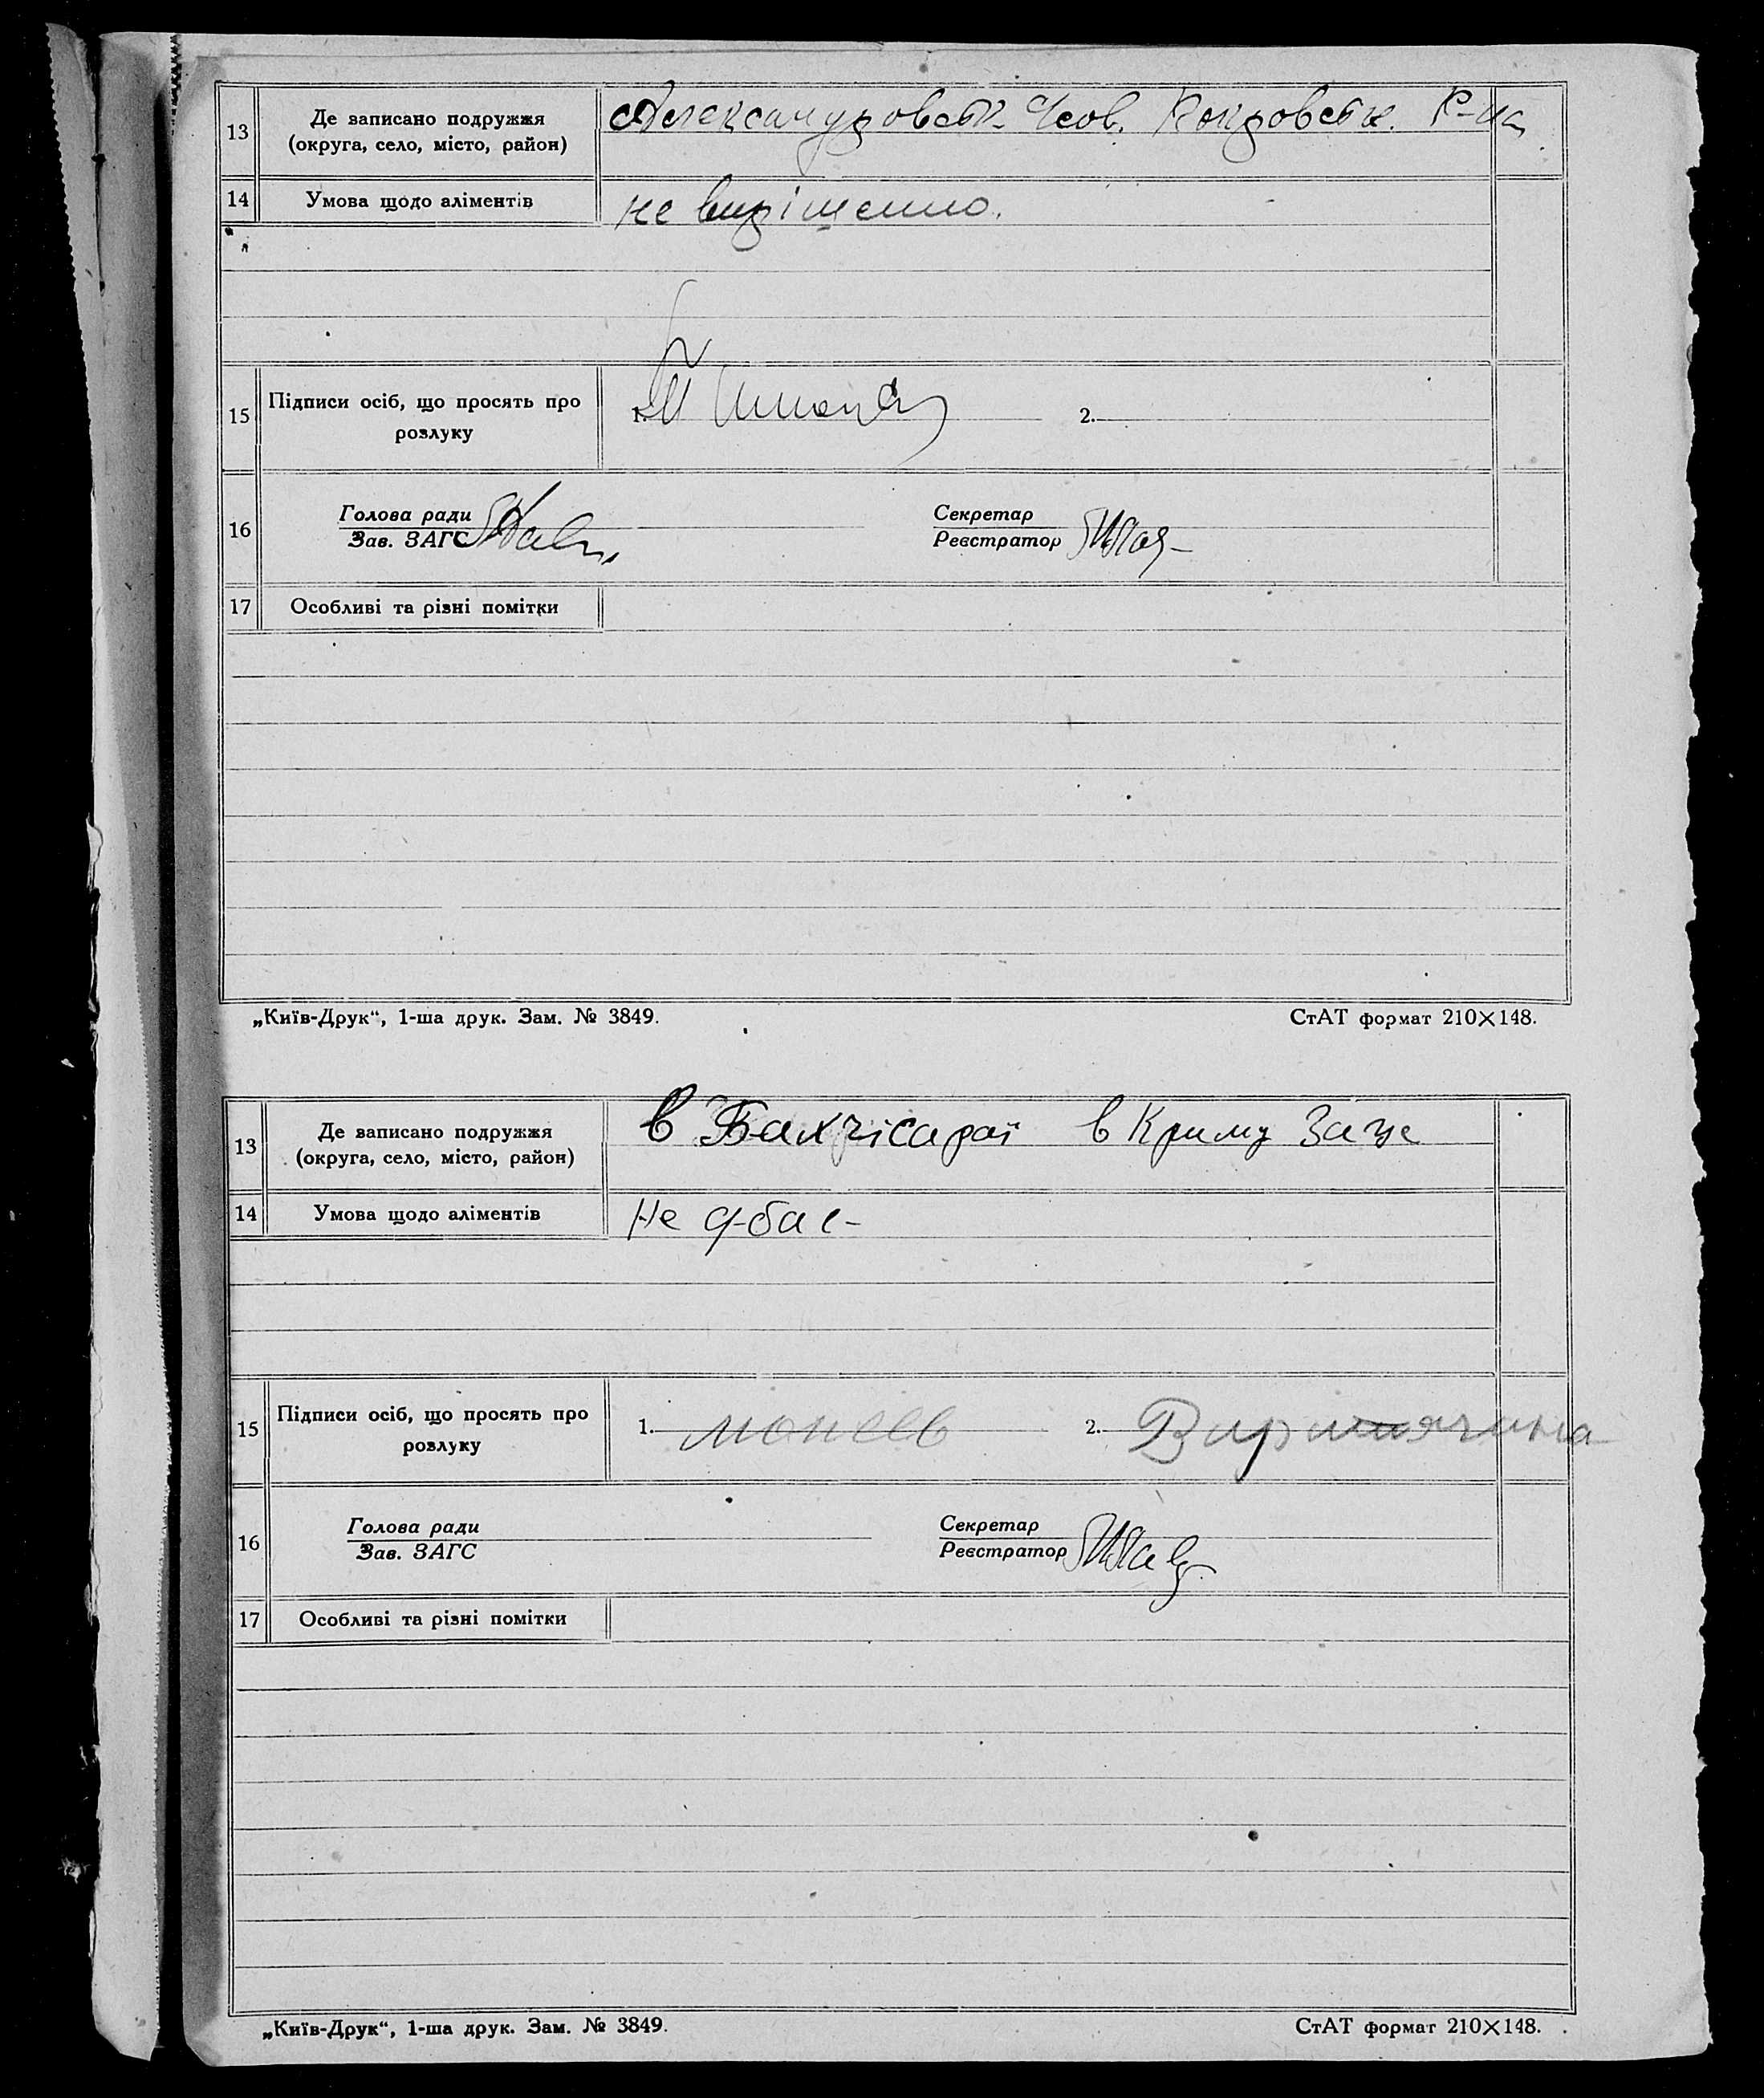 13 Де записано подружжя
(округа, село, місто, район)
Александровськ. Покровськ. Р-на
14 Умова щодо аліментів не вирішенно.
15 Підписи осіб, що просять про
розлуку
1. 2.
16 Голова ради
Зав. ЗАГС
Секретар
Реєстратор
17 Особливі та різні помітки
„Київ-Друк“, 1-ша друк. Зам. № 3849. СтАТ формат 210×148.
13 Де записано подружжя
(округа, село, місто, район)
в Бахчісараї в Криму Загсе
14 Умова щодо аліментів Не дбає
15 Підписи осіб, що просять про
розлуку
1. мопсев 2.
16 Голова ради
Зав. ЗАГС
Секретар
Реєстратор
17 Особливі та різні помітки
„Київ-Друк“, 1-ша друк. Зам. № 3849. СтАТ формат 210×148.